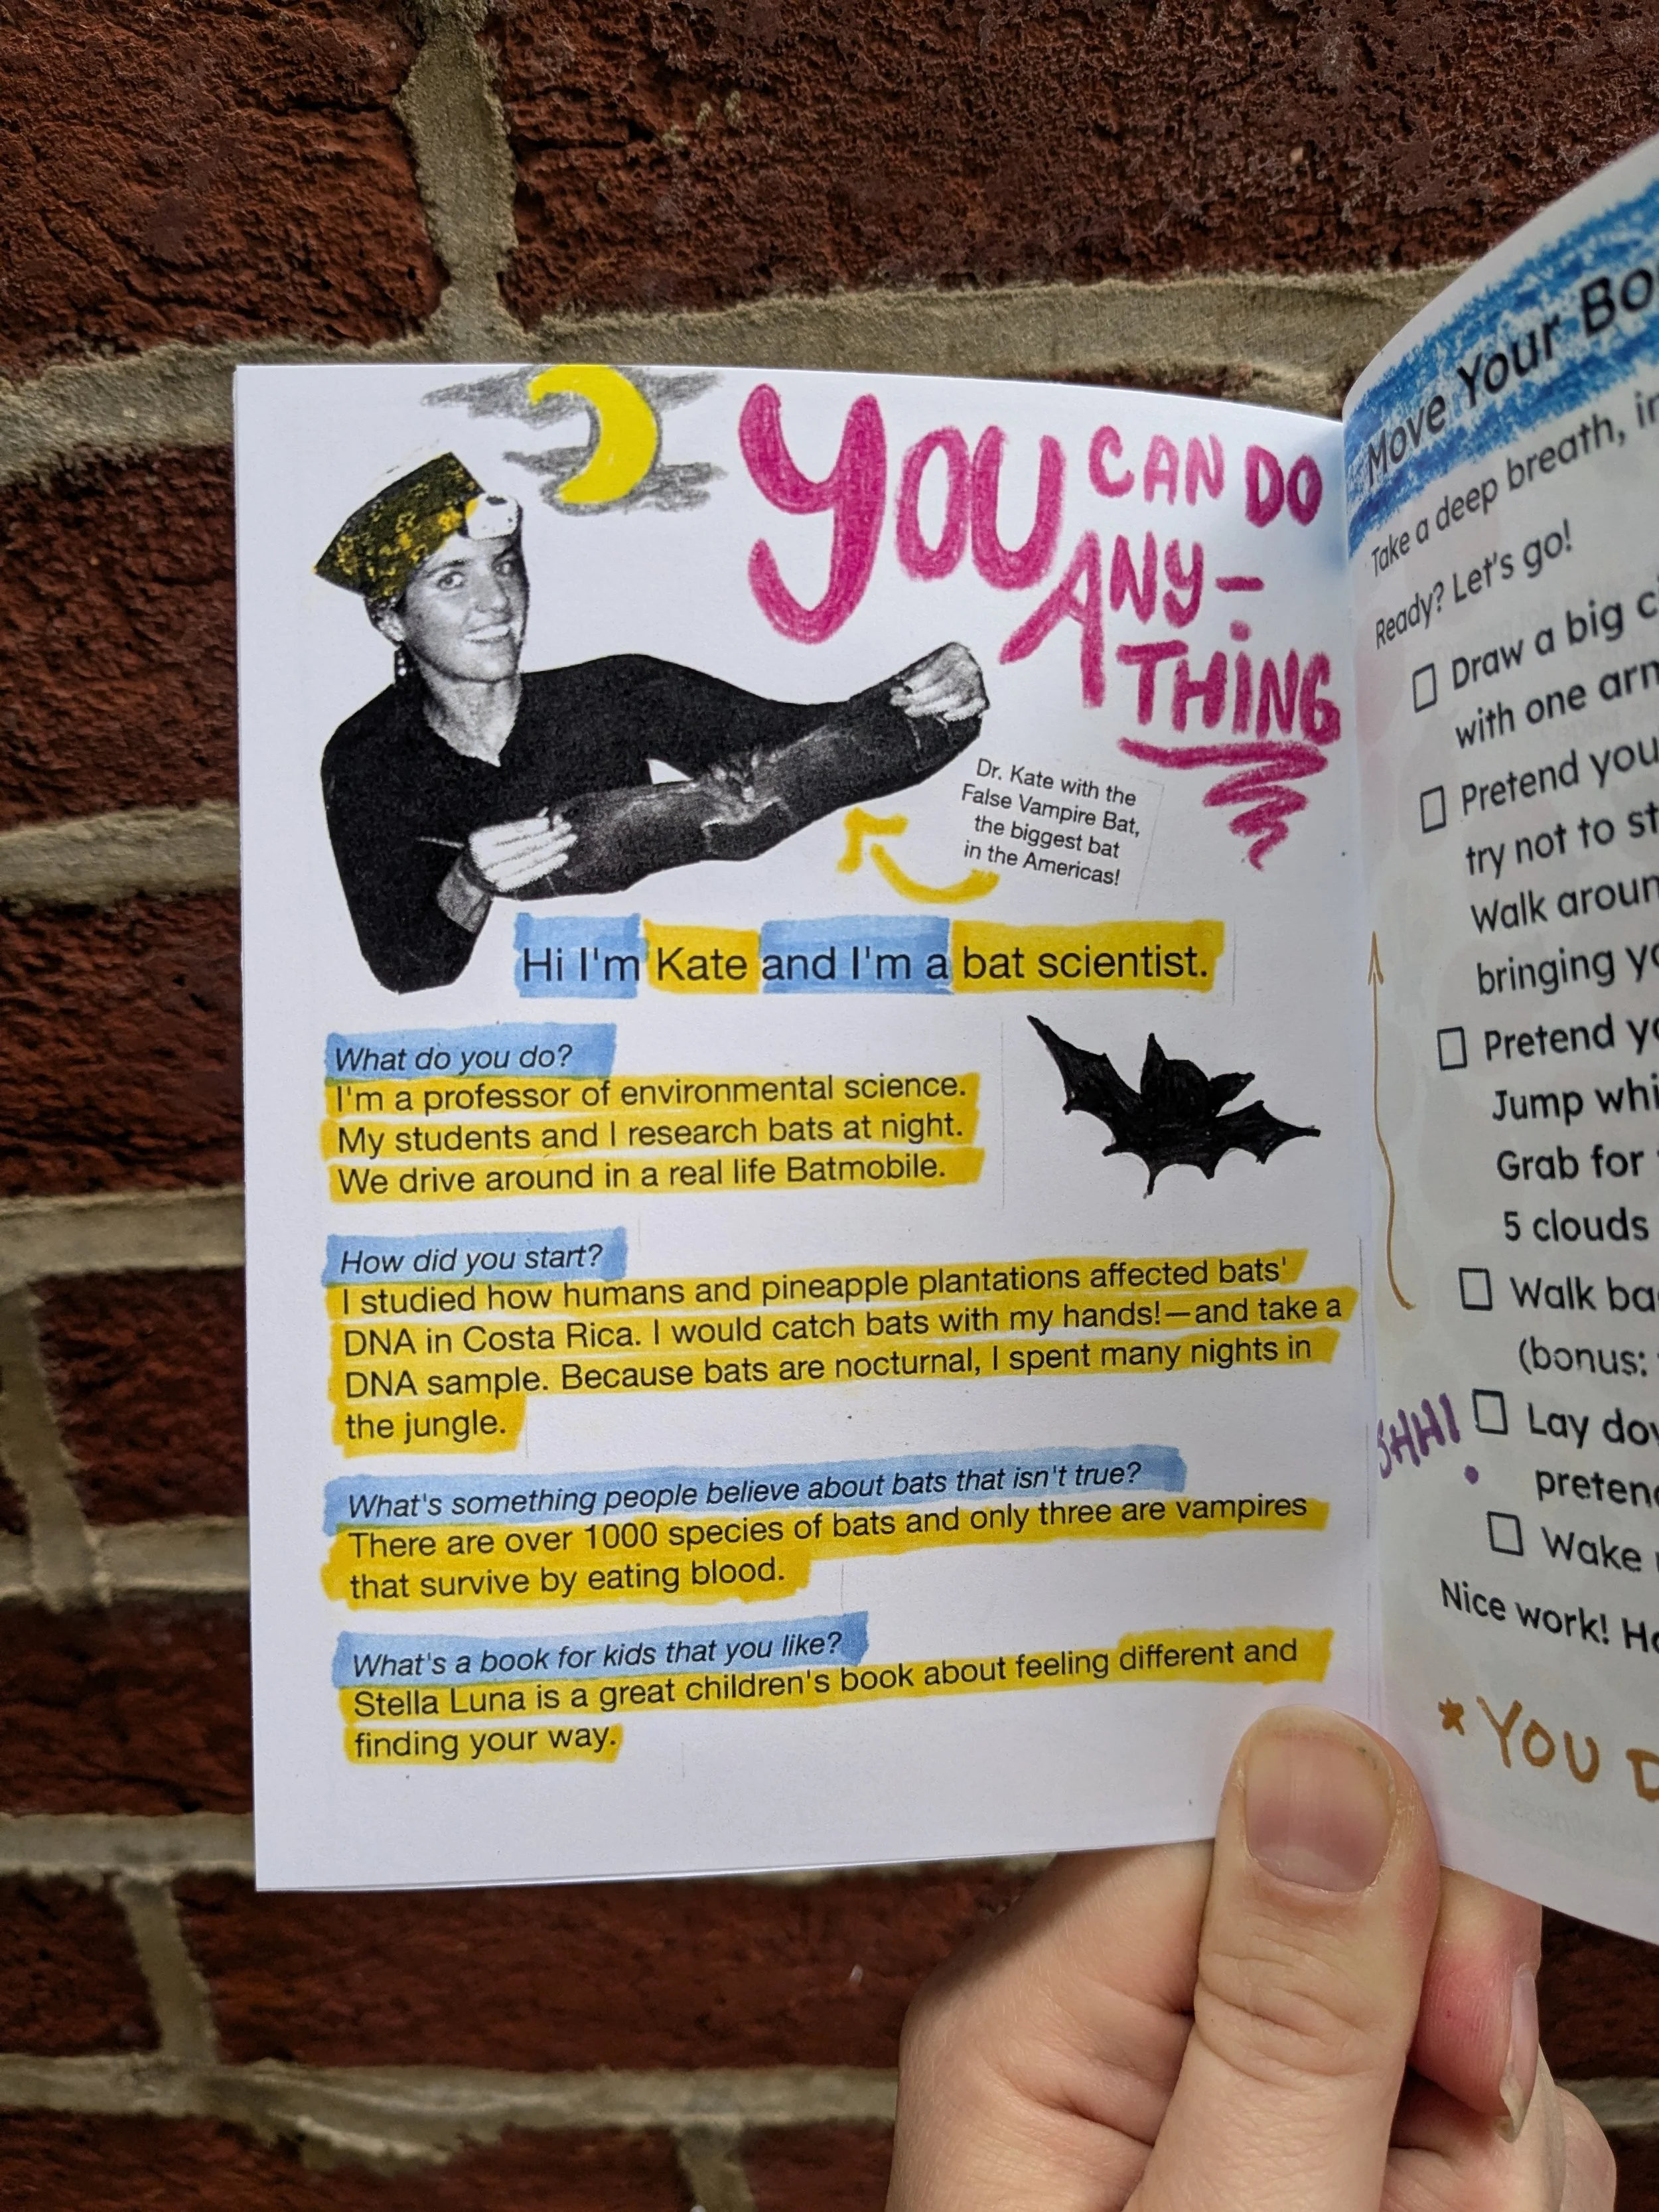 YOU CAN DO
ANY-
THING
Dr. Kate with the
False Vampire Bat,
the biggest bat
in the Americas!
Hi I'm Kate and I'm a bat scientist.
What do you do?
I'm a professor of environmental science.
My students and I research bats at night.
We drive around in a real life Batmobile.
How did you start?
I studied how humans and pineapple plantations affected bats'
DNA in Costa Rica. I would catch bats with my hands!—and take a
DNA sample. Because bats are nocturnal, I spent many nights in
the jungle.
What's something people believe about bats that isn't true?
There are over 1000 species of bats and only three are vampires
that survive by eating blood.
What's a book for kids that you like?
Stella Luna is a great children's book about feeling different and
finding your way.
Move Your
Take a deep breath,
Ready? Let's go!
Draw a big
with one
Pretend
try not to
Walk
bringing
Pretend
Jump
Grab for
5 clouds
Walk
(bonus:
Lay
Wake
Nice work!
* YOU